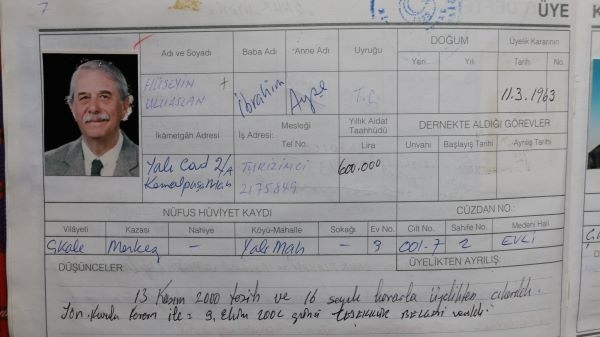 7
ÜYE
Adı ve Soyadı
Baba Adı
Anne Adı
Uyruğu
DOĞUM
Yeri
Yılı
Üyelik Kararının
Tarih
No.
HÜSEYİN
ULUASLAN
İbrahim
Ayşe
T.C
11.3.1963
İkâmetgâh Adresi
İş Adresi:
Mesleği
Tel No.
Yıllık Aidat
Taahhüdü
Lira
DERNEKTE ALDIĞI GÖREVLER
Unvanı
Başlayış Tarihi
Ayrılış Tarihi
Yalı Cad 2/A
Kemalpaşa Mah
TURİZİMCİ
2175849
600.000
NÜFUS HÜVİYET KAYDI
CÜZDAN NO.:
Vilâyeti
Kazası
Nahiye
Köyü-Mahalle
Sokağı
Ev No
Cilt No.
Sahife No.
Medeni Hali
Çkale
Merkez
—
Yalı Mah
—
9
001-7
2
EVLİ
DÜŞÜNCELER
ÜYELİKTEN AYRILIŞ
13 Kasım 2000 tarih ve 16 sayılı kararla üyelikten çıkarıldı.
Yön. Kurulu Kararı ile = 9. Ekim 2006 günü TEŞEKKÜR BELGESİ verildi.